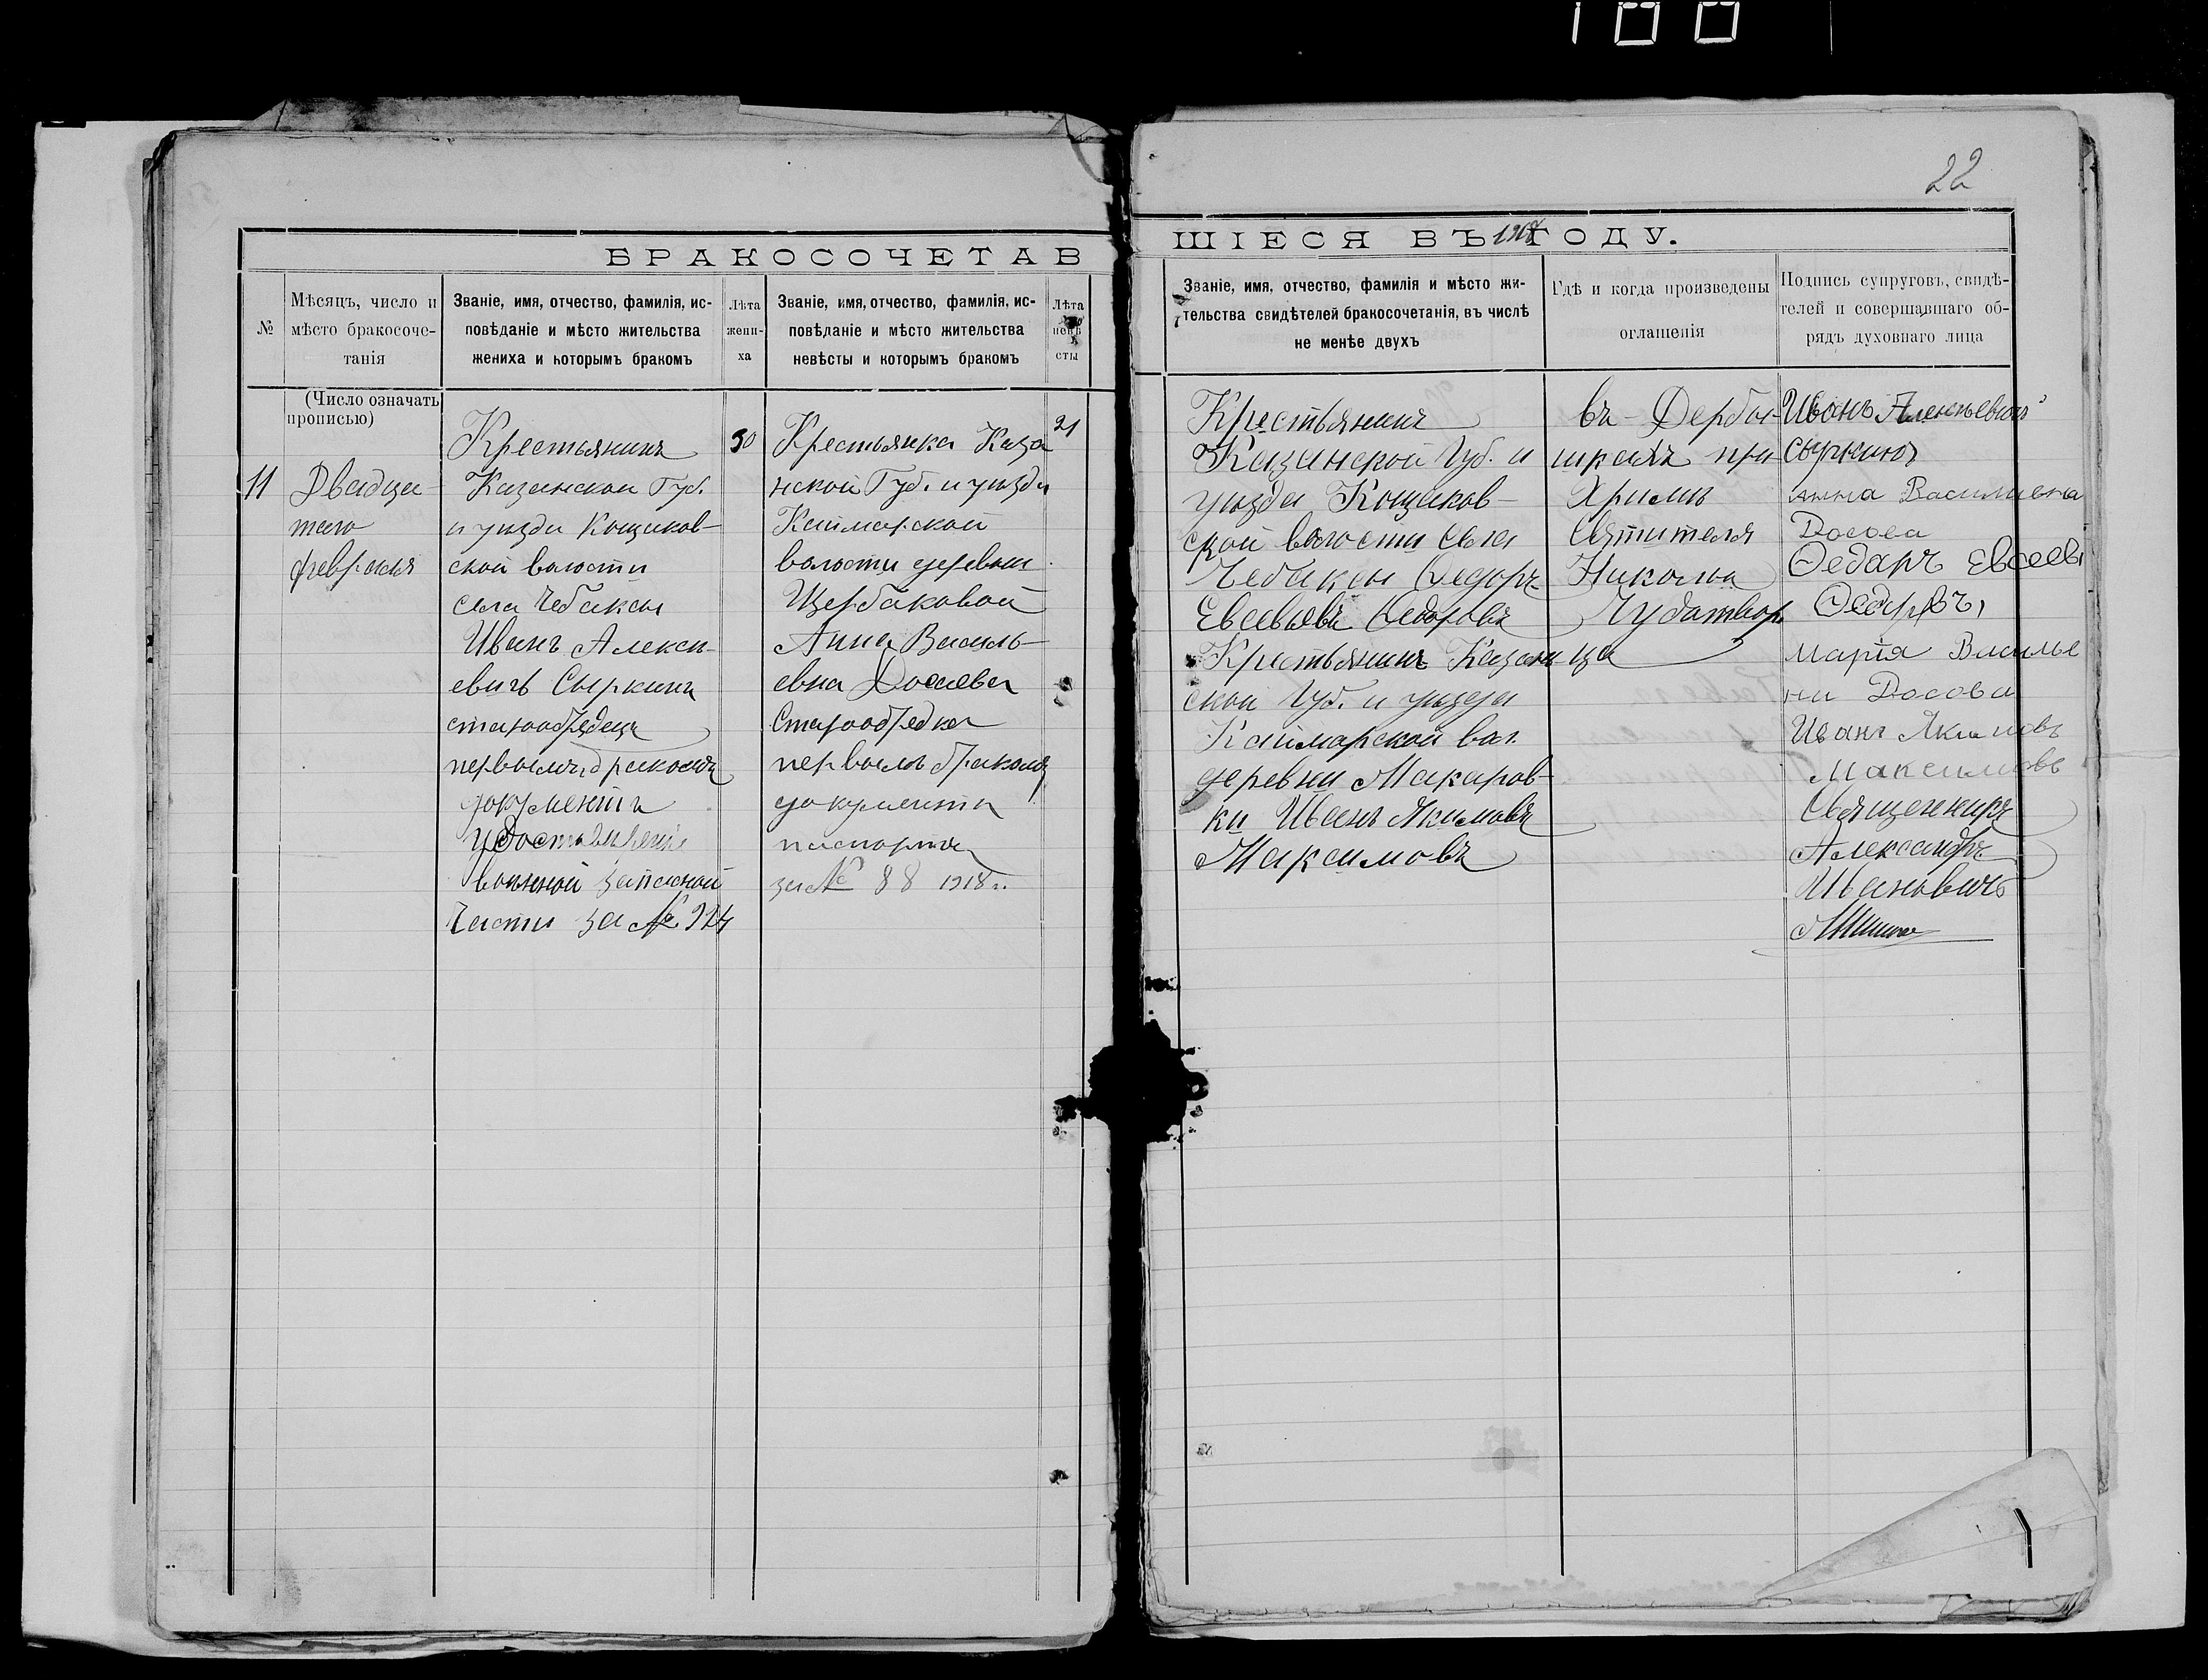 22
БРАКОСОЧЕТАВ
ШІЕСЯ ВЪ 1918 ГОДУ.
№
Мѣсяцъ, число и
мѣсто бракосоче-
танія
Званіе, имя, отчество, фамилія, ис-
повѣданіе и мѣсто жительства
жениха и которымъ бракомъ
Лѣта
жени-
ха
Званіе, имя, отчество, фамилія, ис-
повѣданіе и мѣсто жительства
невѣсты и которымъ бракомъ
Лѣта
невѣ
сты
Званіе, имя, отчество, фамилія и мѣсто жи-
тельства свидѣтелей бракосочетанія, въ числѣ
не менѣе двухъ
Гдѣ и когда произведены
оглашенія
Подпись супруговъ, свидѣ-
телей и совершавшаго об-
рядъ духовнаго лица
(Число означать
прописью)
11
Двадца-
таго
февраля
Крестьянинъ
Казанской Губ.
и уѣзда Кощаков-
ской волости
села Чебаксы
Иванъ Алексѣ-
евичъ Сыркинъ
старообрядецъ
первымъ бракомъ
документъ
военной запасной
части за № 924
30
Крестьянка Каза
нской Губ. и уѣзда
Каймарской
волости деревни
Щербаковой
Анна Василь-
евна Досаева
Старообрядка
первымъ бракомъ
документъ
паспортъ
за № 88 1918 г.
21
Крестьянинъ
Казанской Губ. и
уѣзда Кощаков-
ской волости села
Чебаксы Федоръ
Евсевьевъ Федоровъ
Крестьянинъ Казан-
ской Губ. и уѣзда
Каймарской вол.
деревни Макаров-
ки Иванъ Якимовъ
Максимовъ
въ Дербы-
шкахъ при
Храмѣ
Святителя
Николы
Чудотвор
ца
Иванъ Алексѣевичъ
Сыркинъ
Анна Василивна
Досова
Федаръ Евсеевъ
Федоровъ,
Марія Василье
на Досова
Иванъ Якимовъ
Максимовъ
Священникъ
Александръ
Ивановичъ